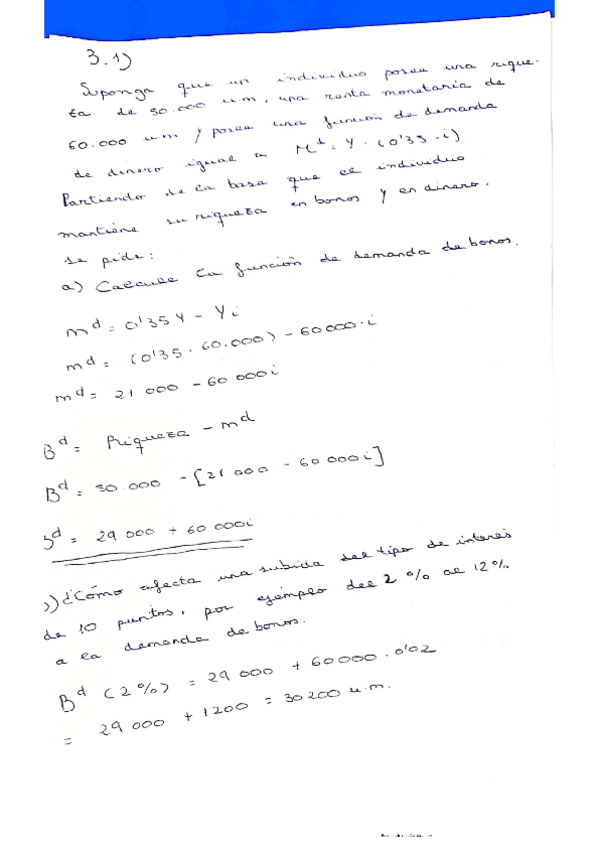 3.1)
Suponga que un individuo posea una rique-
za de 50.000 u.m, una renta monetaria de
60.000 u.m y posea una función de demanda
de dinero igual a Md = Y · (0'35 - i)
Partiendo de la base que el individuo
mantiene su riqueza en bonos y en dinero.
se pide:
a) Calcule la función de demanda de bonos.
md = 0'35 Y - Y i
md = (0'35 · 60.000) - 60000 · i
md = 21 000 - 60 000i
Bd = Riqueza - md
Bd = 50.000 - [21 000 - 60 000i]
Bd = 29 000 + 60 000i
b) ¿Cómo afecta una subida del tipo de interes
de 10 puntos, por ejemplo del 2 % al 12%
a la demanda de bonos.
Bd (2%) = 29 000 + 60000 · 0'02
= 29 000 + 1200 = 30200 u.m.